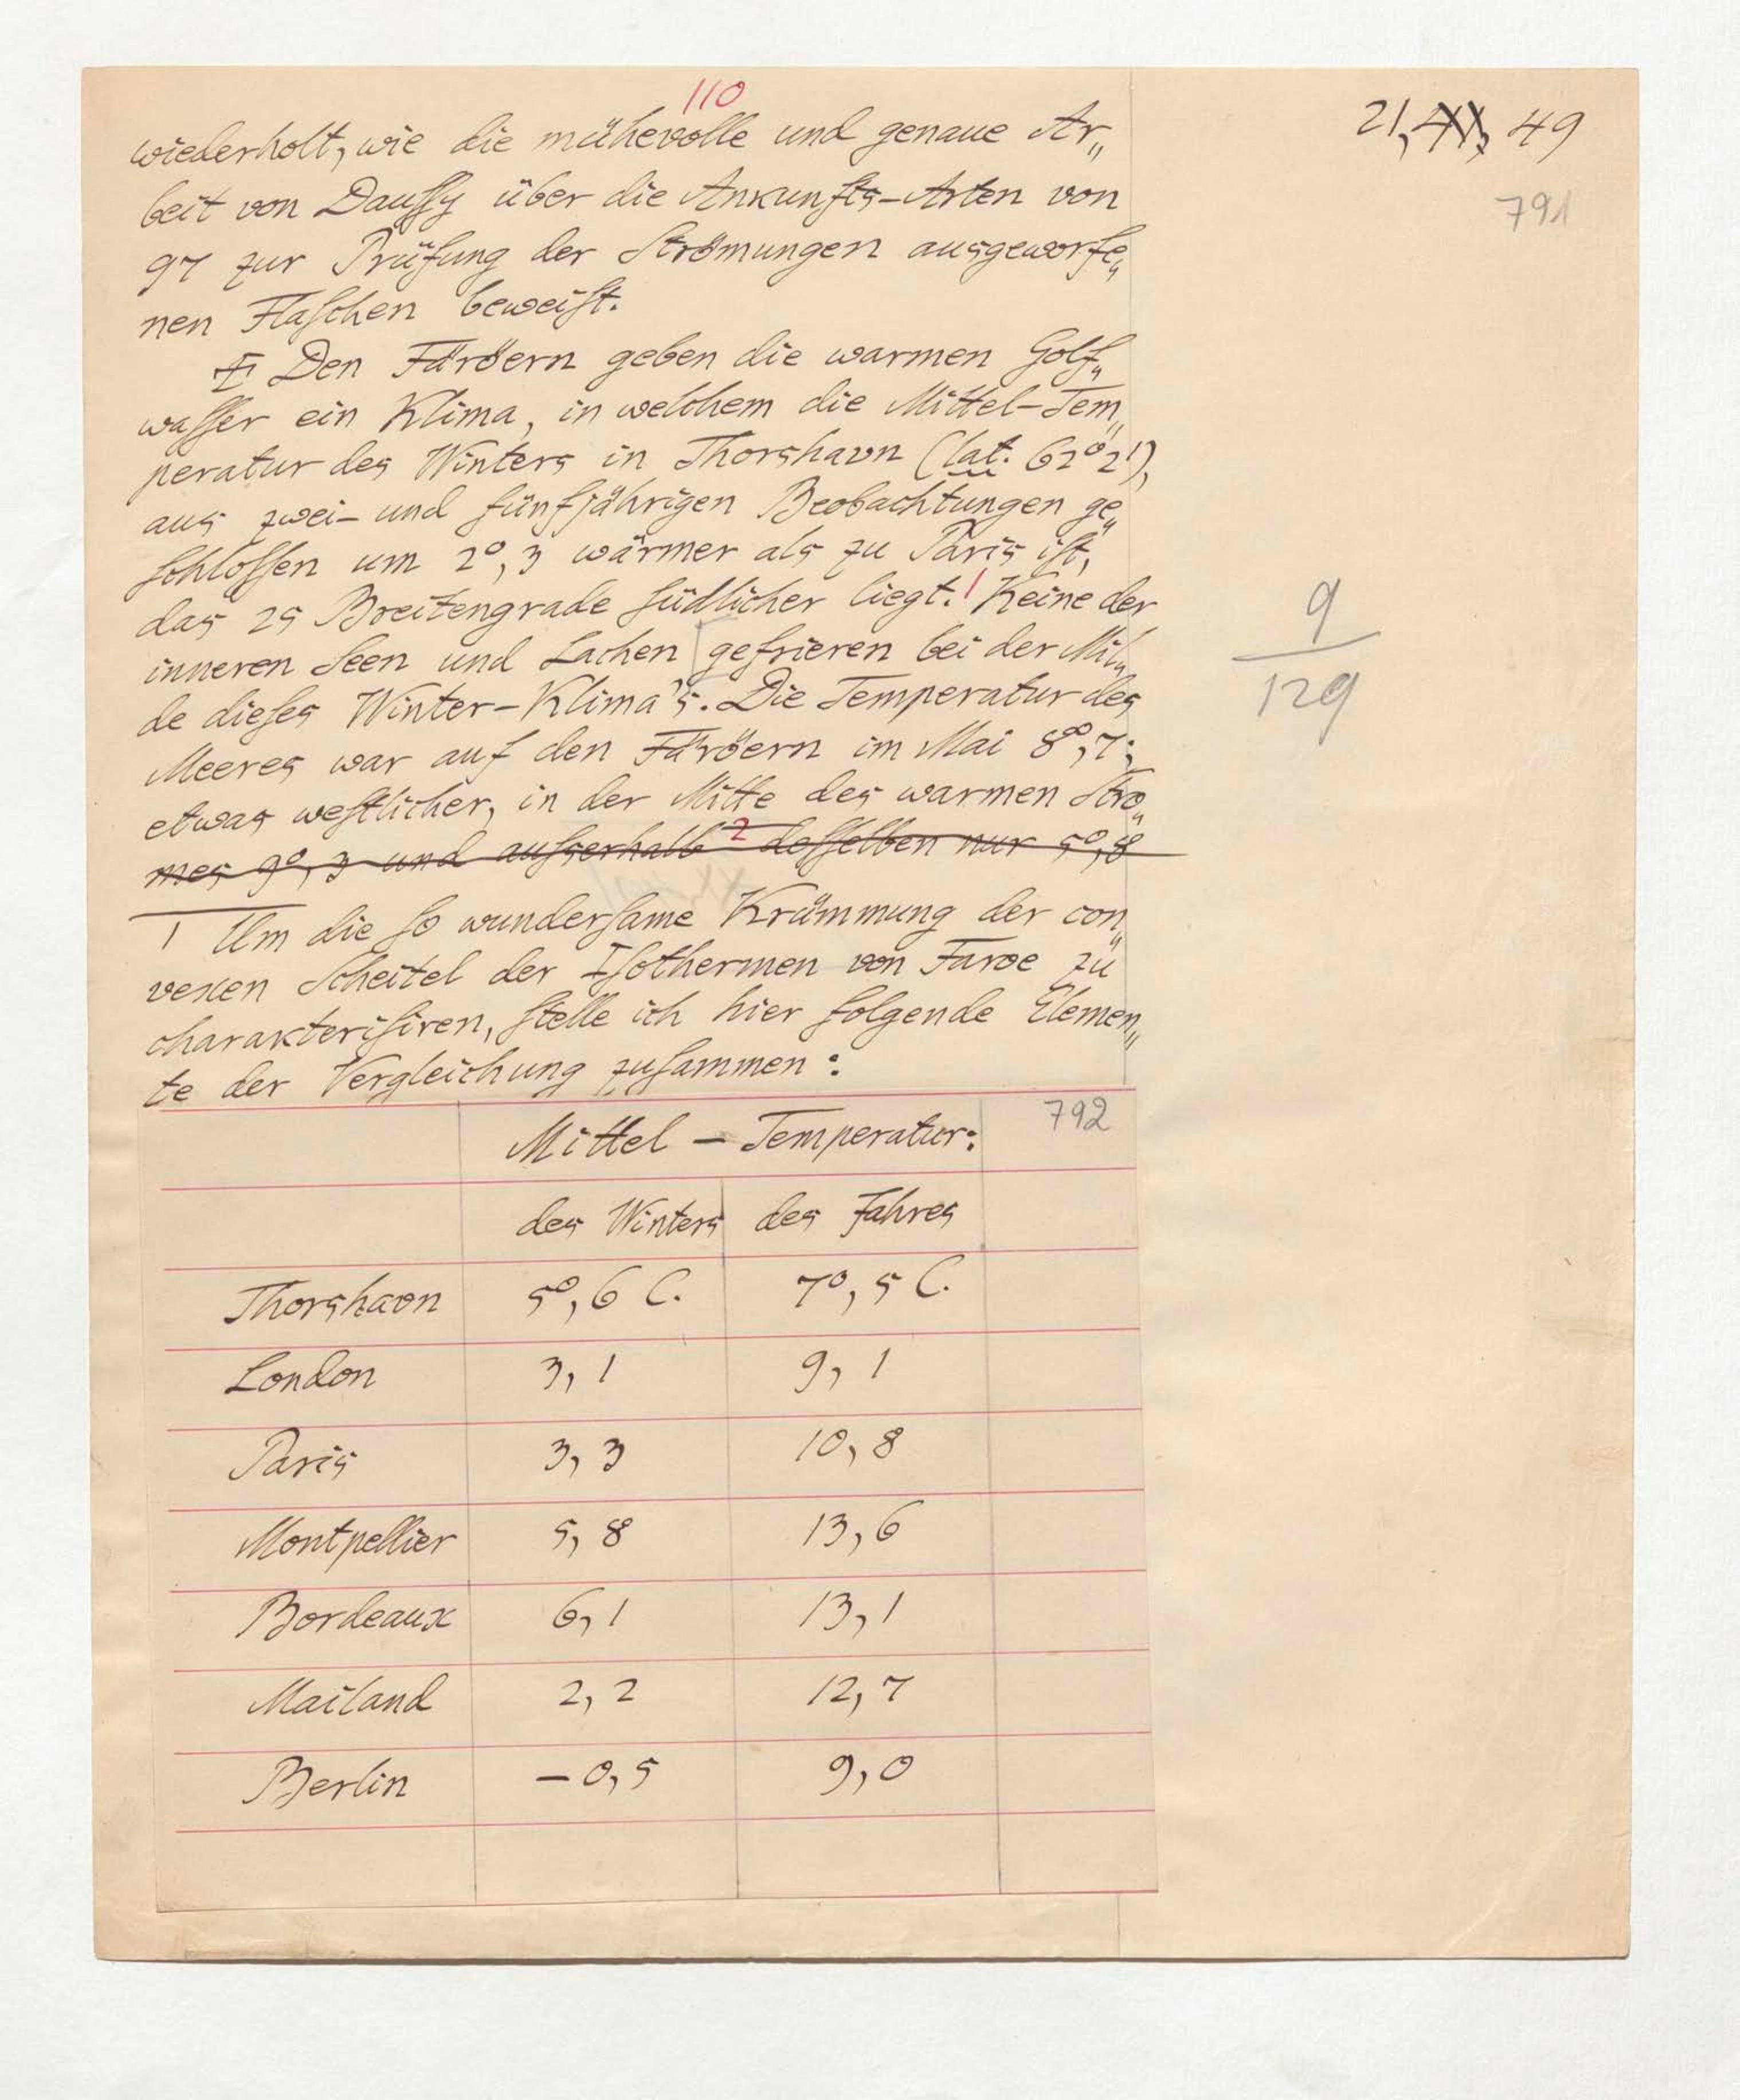 110
21, XX, 49
791
wiederholt, wie die mühevolle und genaue Ar„
beit von Daussy über die Ankunfts-Arten von
97 zur Prüfung der Strömungen ausgeworfe„
nen Flaschen beweist.
Den Färöern geben die warmen Golf„
wasser ein Klima, in welchem die Mittel-Tem„
peratur des Winters in Thorshavn (lat. 62° 2'),
aus zwei- und fünfjährigen Beobachtungen ge„
schlossen um 2°,3 wärmer als zu Paris ist,
das 25 Breitengrade südlicher liegt. Keine der
inneren Seen und Lachen gefrieren bei der Mil„
de dieses Winter-Klima's. Die Temperatur des
Meeres war auf den Färöern im Mai 8°,7;
etwas westlicher, in der Mitte des warmen Stro„
mes 9°, 3 und ausserhalb 2 desselben nur 5°,8
1 Um die so wundersame Krümmung der con„
vexen Scheitel der Isothermen von Faroe zu
charakterisiren, stelle ich hier folgende Elemen„
te der Vergleichung zusammen:
9
129
Mittel - Temperatur: 792
des Winters des Jahres
Thorshavn 5°,6 C. 7°,5 C.
London 3,1 9,1
Paris 3,3 10,8
Montpellier 5,8 13,6
Bordeaux 6,1 13,1
Mailand 2,2 12,7
Berlin -0,5 9,0